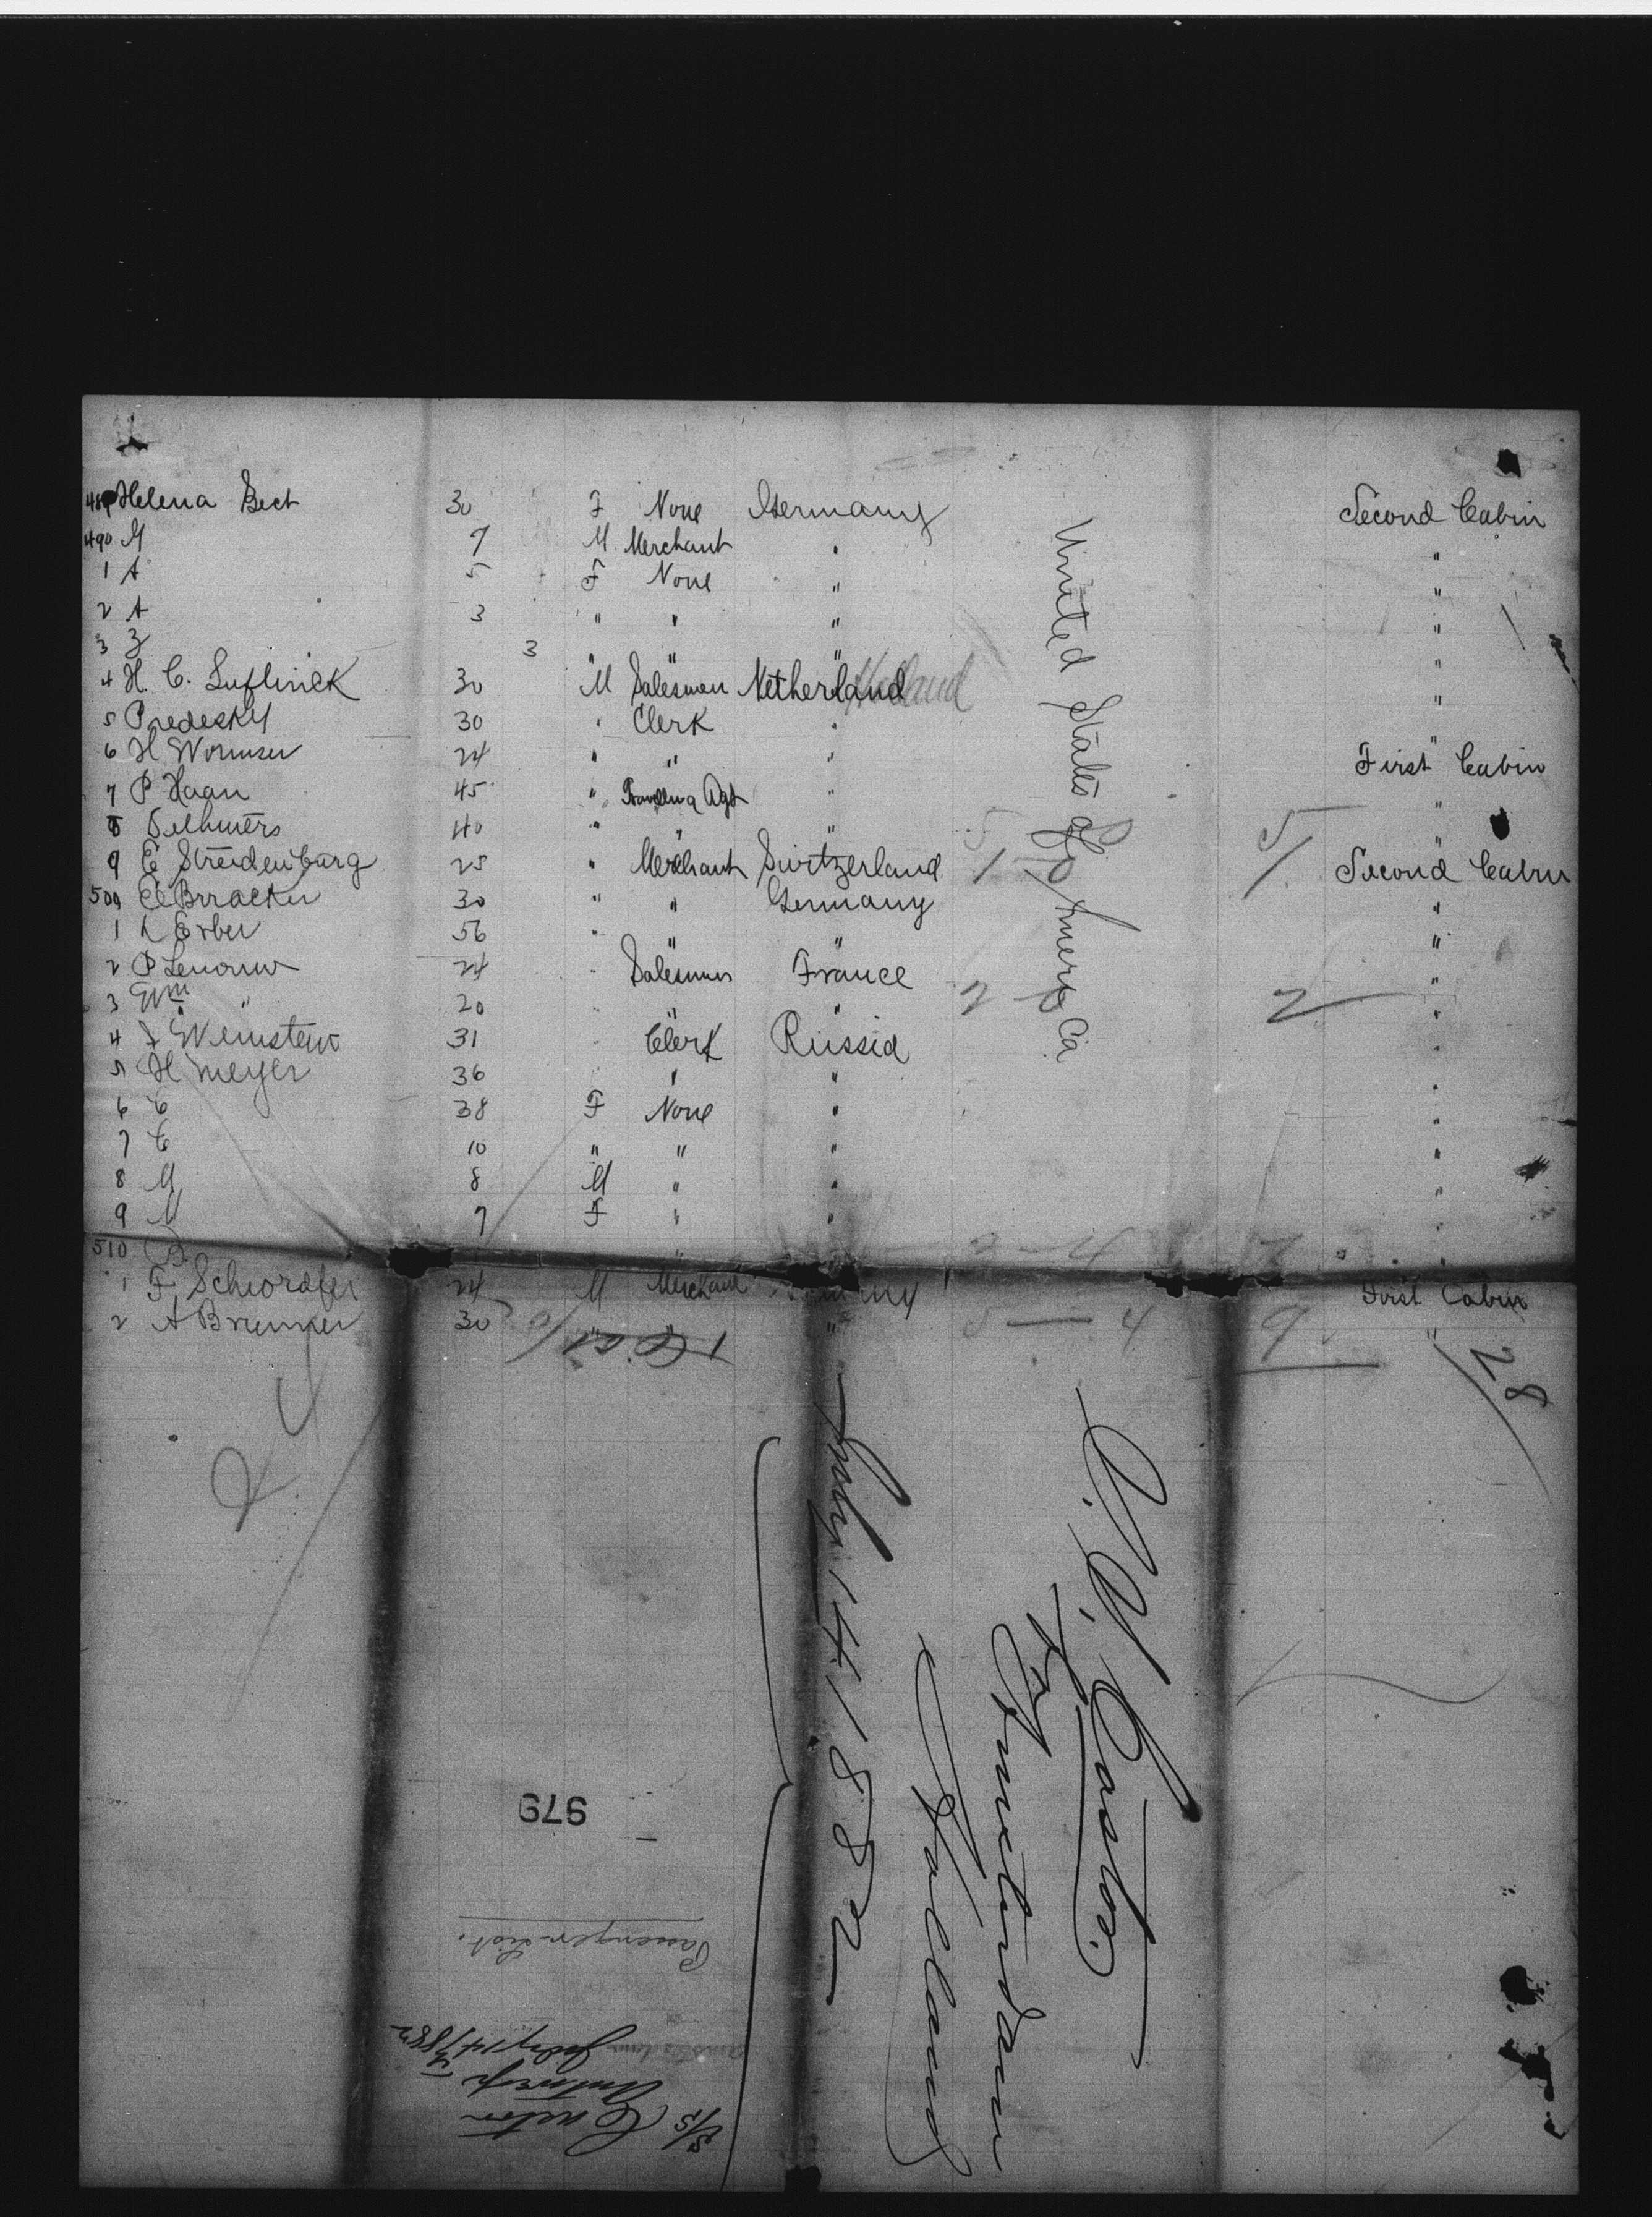 489 Helena Bect 30 F None Germany Second Cabin
490 M 7 M Merchant " "
1 A 5 F None " "
2 A 3 " " " "
3 Z 3 " " " "
4 H. C. 30 M Salesman Netherland Holland "
5 Predesky 30 " Clerk " "
6 H Wormser 24 " " " First Cabin
7 P Haan 45 " Agt " "
8 40 " " "
9 E Streidenburg 25 " Merchant Switzerland 5/ Second Cabin
500 30 " " Germany "
1 L Erber 56 " " " "
2 P 24 " Salesman France "
3 Wm " 20 " " " 2 "
4 Weinstein 31 " Clerk Russia "
5 H Meyer 36 " " " "
6 C 38 F None " "
7 C 10 " " " "
8 M 8 M " " "
9 M 7 F " " "
510
1 F. 24 M Merchant Germany First Cabin
2 A Brunner 30 " " 5 — 4 9 "
United States of America
28
S.S. Castor
fr
Amsterdam
Holland
July 14 1882
979
Passenger List.
S/S Castor
Antwerp
Amsterdam
July 14/882